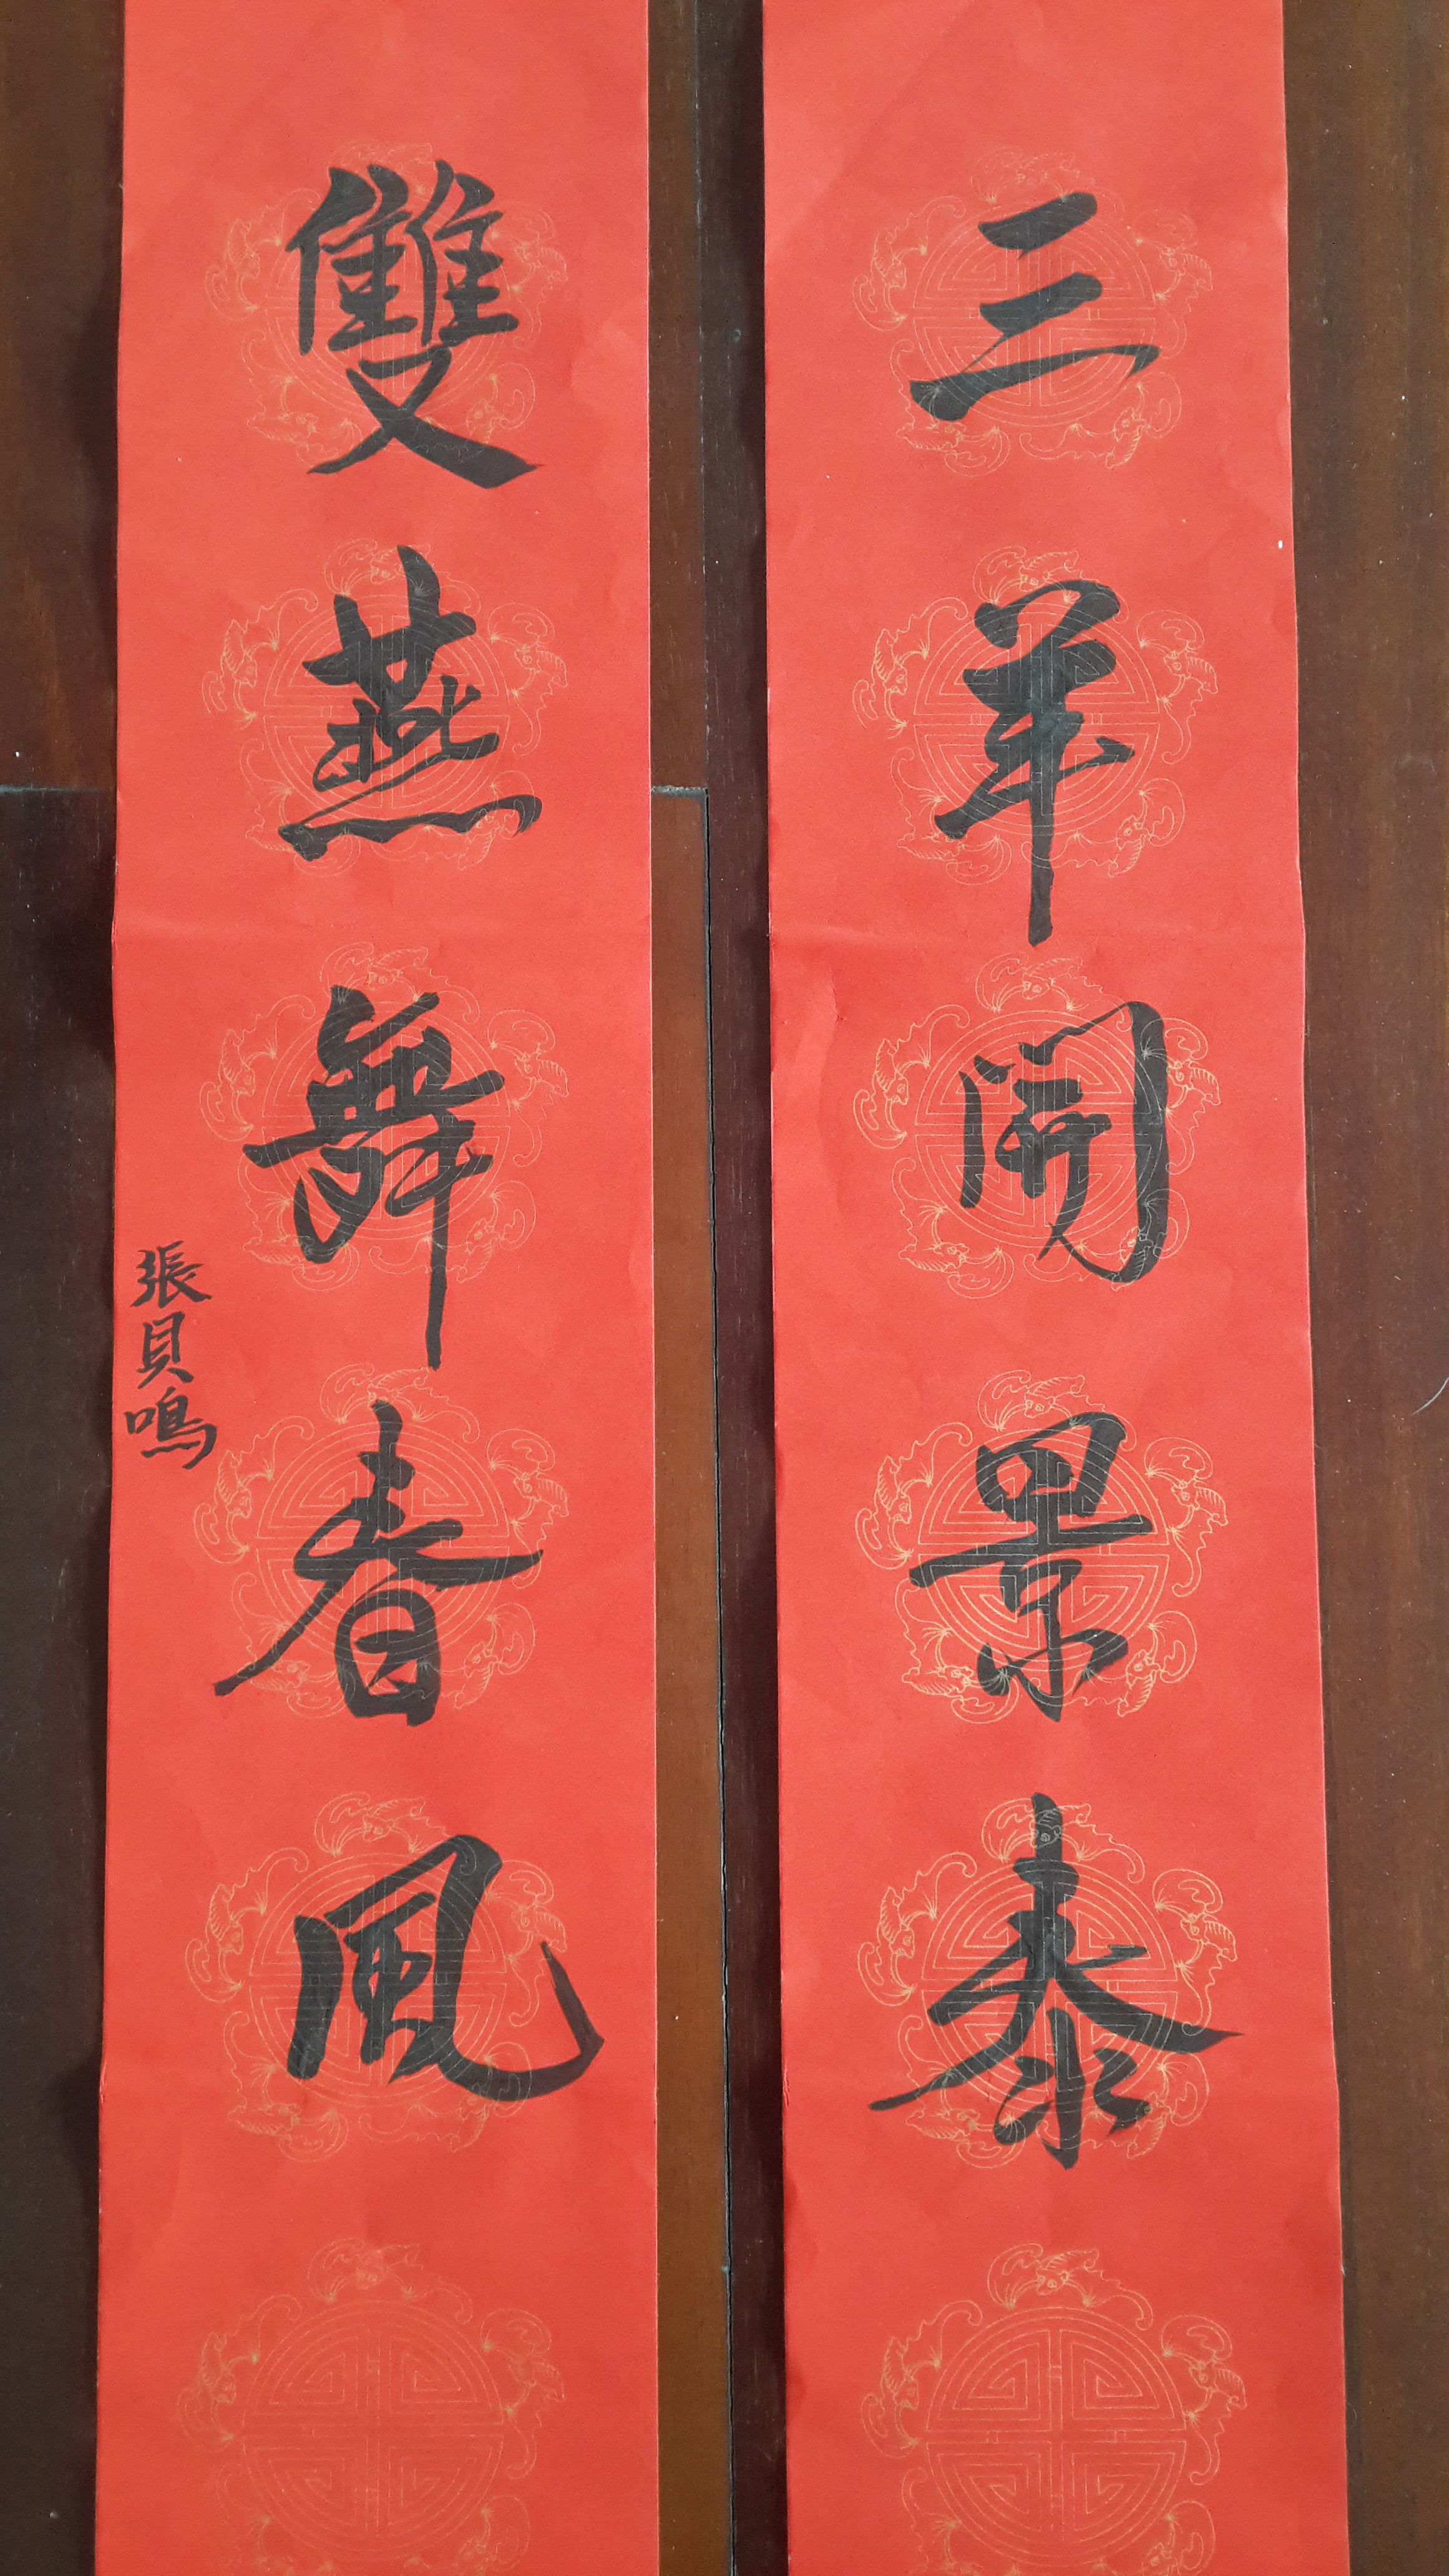 三羊開景泰
雙燕舞春風
張貝鳴